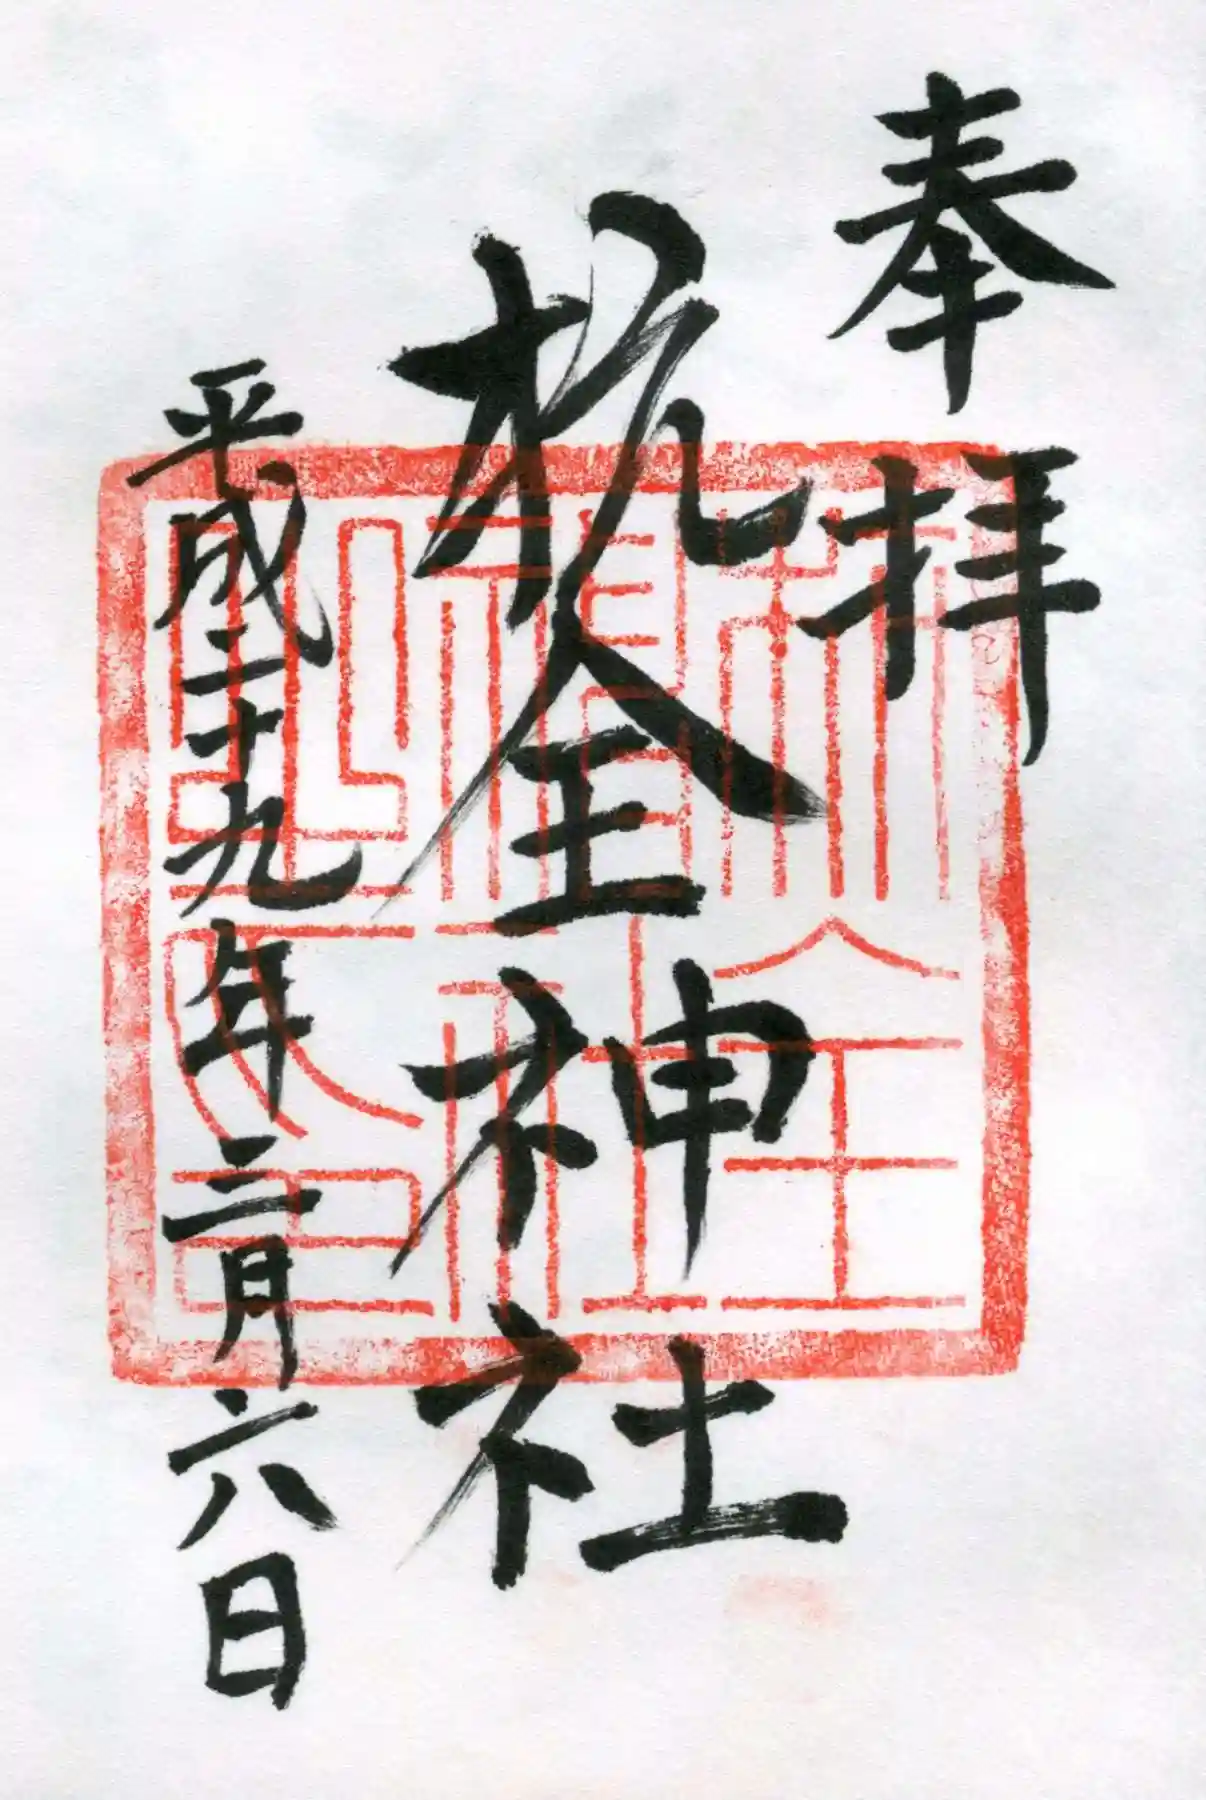 奉拝
杭全神社
平成二十九年三月六日